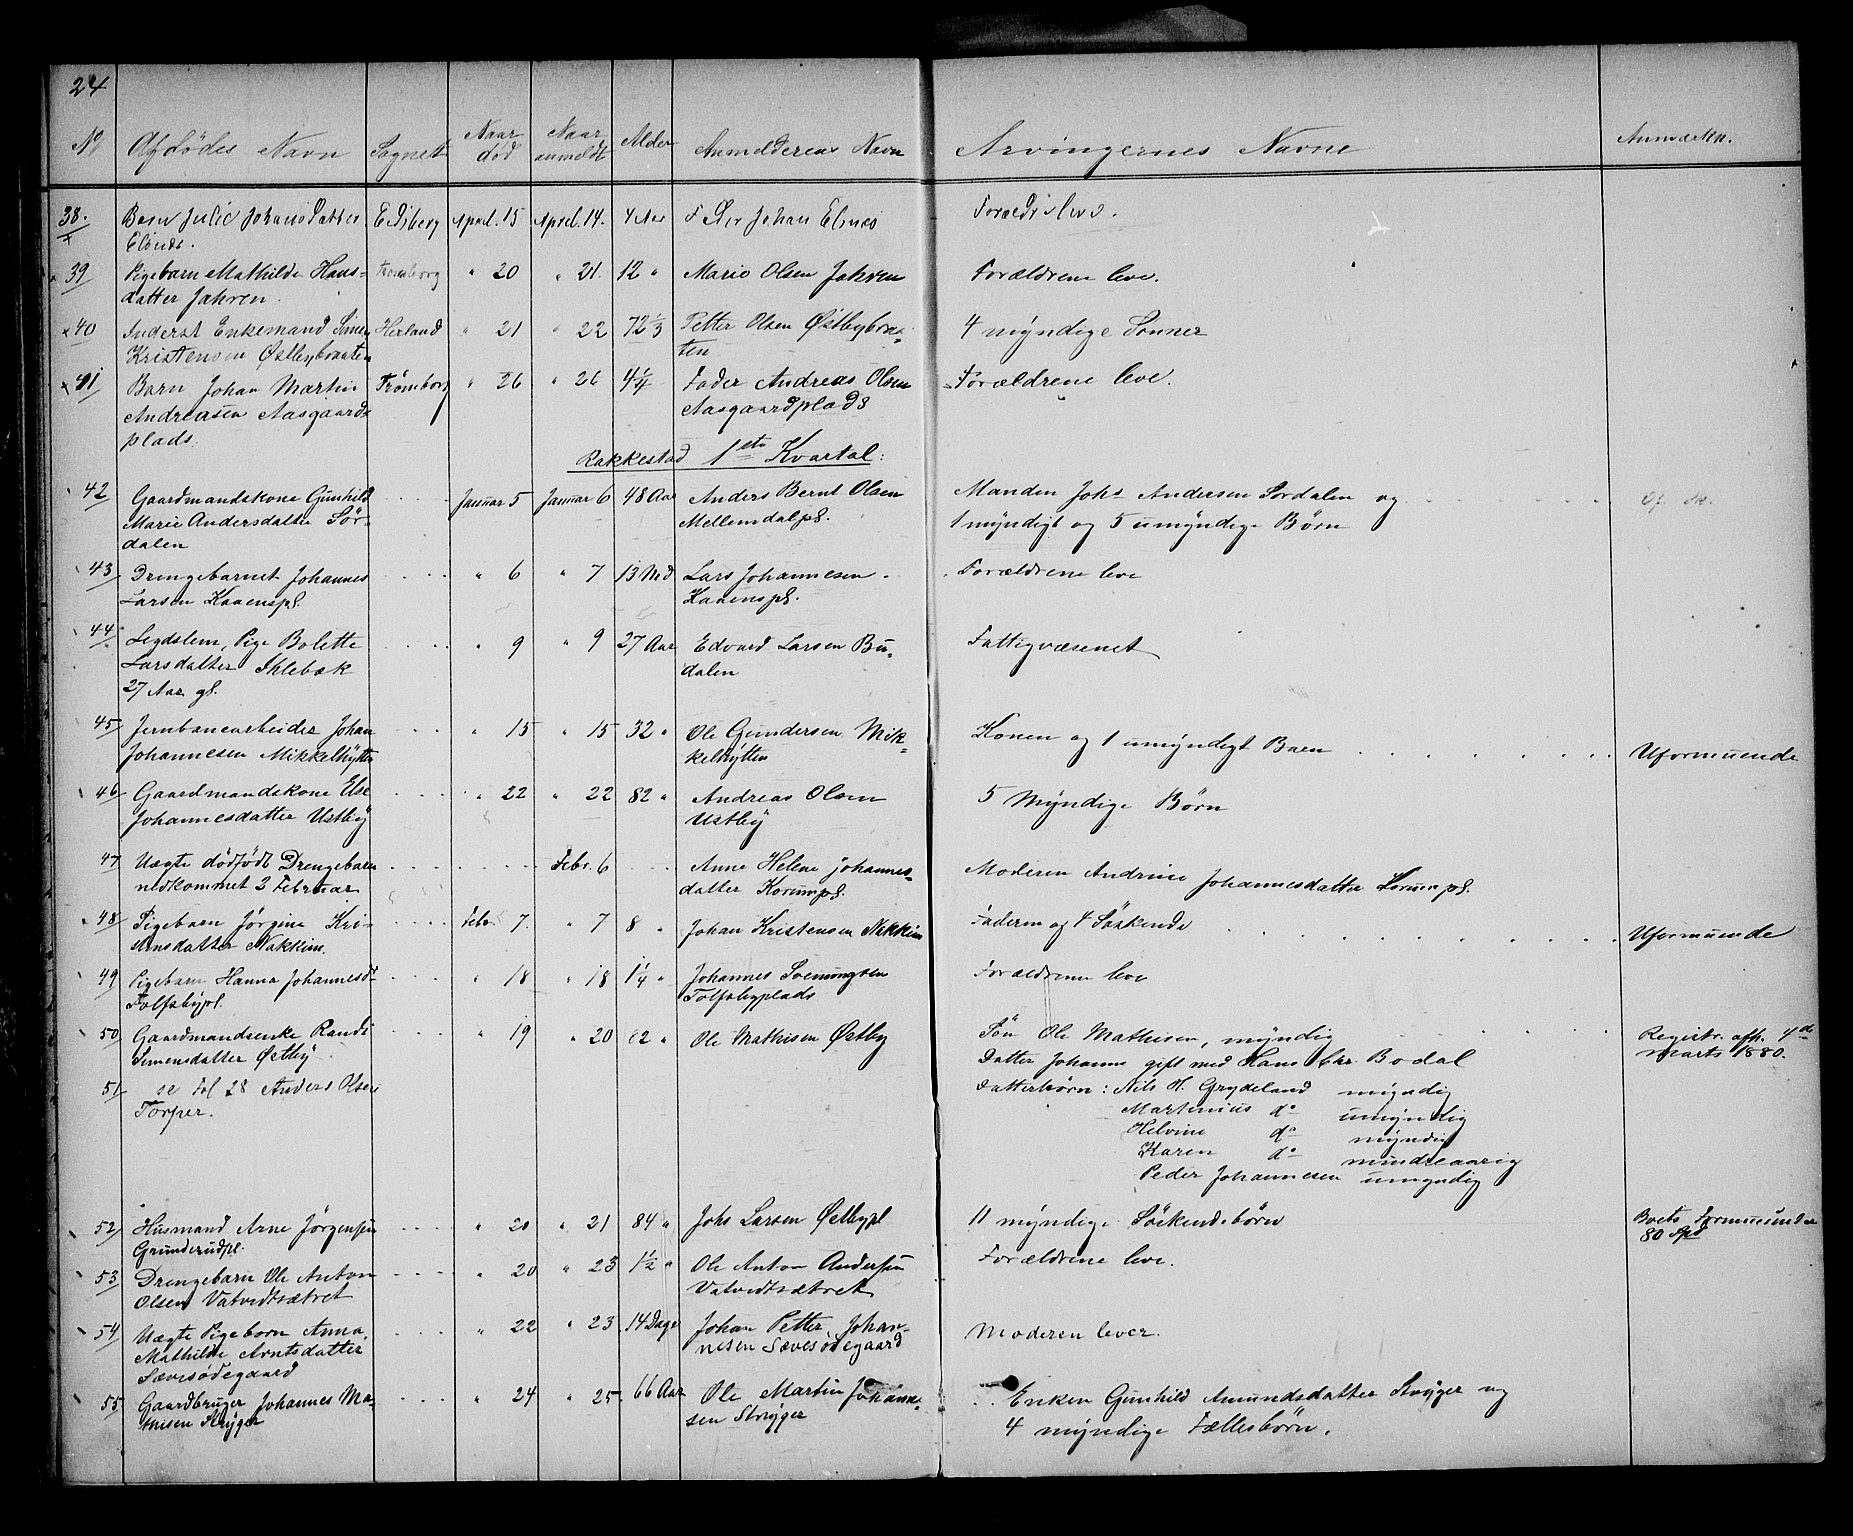 24
No Afdødes Navn Sognet Naar død Naar anmeldt Alder Anmelderens Navn Arvingernes Navne Anmærkn.
38. Barn Julie Johansdatter Eidsberg April 15 April 14. 4 Aar Fader Johan Elsnes Forældr leve.
Elsnes.
39 Pigebarn Mathilde Hans- Trømborg " 20 " 21. 12 " Marie Olsen Jahren Forældrene leve.
datter Jahren.
40 Inderst Enkemand Simen Herland " 21 " 22 72 1/3 Petter Olsen Østbybraa- 4 myndige Sønner
Kristensen Østbybraaten ten
41 Barn Johan Martin Trømborg " 26 " 26 4 1/4 Fader Andreas Olsen Forældrene leve.
Andreasen Aasgaards- Aasgaardplads
plads.
Rakkestad 1ste Kvartal:
42 Gaardmandskone Gunhild Januar 5 Januar 6 48 Aar Anders Bernt Olsen Manden Johs Andersen Sørdalen og
Marie Andersdatter Sør- Mellemdalpl. 1 myndigt og 5 umyndige Børn
dalen
43 Drengebarnet Johannes " 6 " 7 13 Md Lars Johannesen Forældrene leve
Larsen Kaaenspl. Kaaenspl.
44 Legdslem, Pige Bolette " 9 " 9 27 Aar Edvard Larsen Bu- Fattigvæsenet
Larsdatter dalen
27 Aar gl.
45 Jernbanearbeider Johan " 15 " 15 32 " Ole Gundersen Mik- Konen og 1 umyndigt Barn Uformuende
Johannesen Mikkelhytten kelhytten
46 Gaardmandskone Else " 22 " 22 82 " Andreas Olsen 5 Myndige Børn
Johannesdatter Ustby Ustby
47 Uægte dødfødt Drengebarn Febr. 6 Anne Helene Johannes- Moderen Andrine Johannesdatter Korumpl.
nedkommet 2 Februar datter Korumpl.
48 Pigebarn Jørgine Kri- Febr. 7. " 7 8 " Johan Kristensen Nakkim Faderen og 4 Søskende Uformuende
stensdatter Nakkim.
49 Pigebarn Hanna Johannesdt " 18 " 18 1 1/4 " Johannes Svenungsen Forældrene leve
Folfsbypl. Folfsbyplads
50 Gaardmandsenke Randi " 19 " 20 82 " Ole Mathisen Østby Søn Ole Mathisen, myndig Registr. afh. 4de
Simensdatter Østby Datter Johanne gift med Hans Chr Bodal marts 1880.
51 se Fol 28 Anders Olsen Datterbørn: Nils H. Grydeland myndig
Torper. Martinius do umyndig
Helvine do myndig
Karen do mindreaarig
Peder Johannesen umyndig
52 Husmand Arne Jørgensen " 20 " 21 84 " Johs Larsen Østbypl 11 myndige Søskendebørn Boets Formue under
Grunderudpl. 80 Spd
53 Drengebarn Ole Anton " 20 " 23 1 1/2 " Ole Anton Andersen Forældrene leve.
Olsen Vatvedtsætret Vatvedtsætret
54 Uægte Pigebarn Anna " 22 " 23 14 Dage Johan Petter Johan- Moderen lever.
Mathilde Arntsdatter nesen Sævesødegaard
Sævesødegaard
55 Gaardbruger Johannes Ma- " 24 " 25. 66 Aar Ole Martin Johanne- Enken Gunhild Amundsdatter Stryger og
thisen Stryger sen Stryger 4 myndige Fællesbørn.